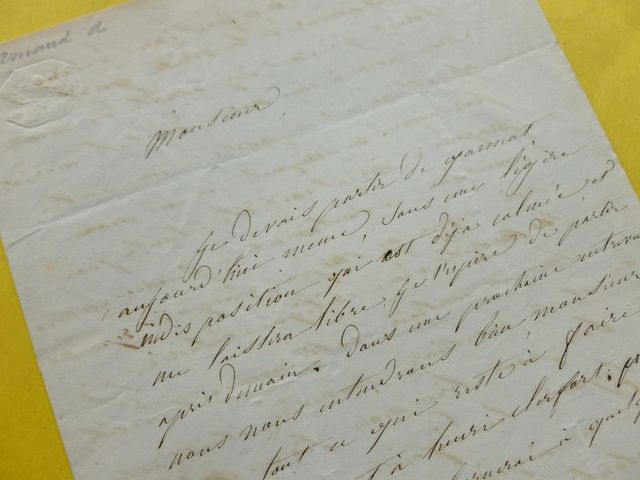 Monsieur,
Je devais partir de gannat
aujourd'hui même, sans une légère
indisposition qui est déjà calmée, et
me laissera libre, je l'espère de, partir
après demain. dans une prochaine
nous nous entendrons bien, monsieur
tout ce qui reste à faire
à henri
à